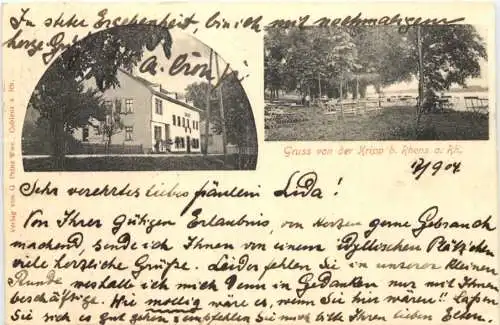 In steter Ergebenheit, bin ich mit nochmaligem
herzl. Gruß
Gruss von der Kripp b. Rhens a. Rh.
17/9 04
Verlag von G. Coblenz a. Rh.
Sehr verehrtes liebes Fräulein Lida!
Von Ihrer gütigen Erlaubnis, von Herzen gerne Gebrauch
machend, sende ich Ihnen von einem idyllischen Plätzchen
viele herzliche Grüße. Leider fehlen Sie in unserer kleinen
Runde weshalb ich mich denn in Gedanken nur mit Ihnen
beschäftige. Wie mollig wäre es, wenn Sie hier wären!! Laßen
Sie sich es gut gehen & empfehlen Sie mich bitte Ihren lieben Eltern.